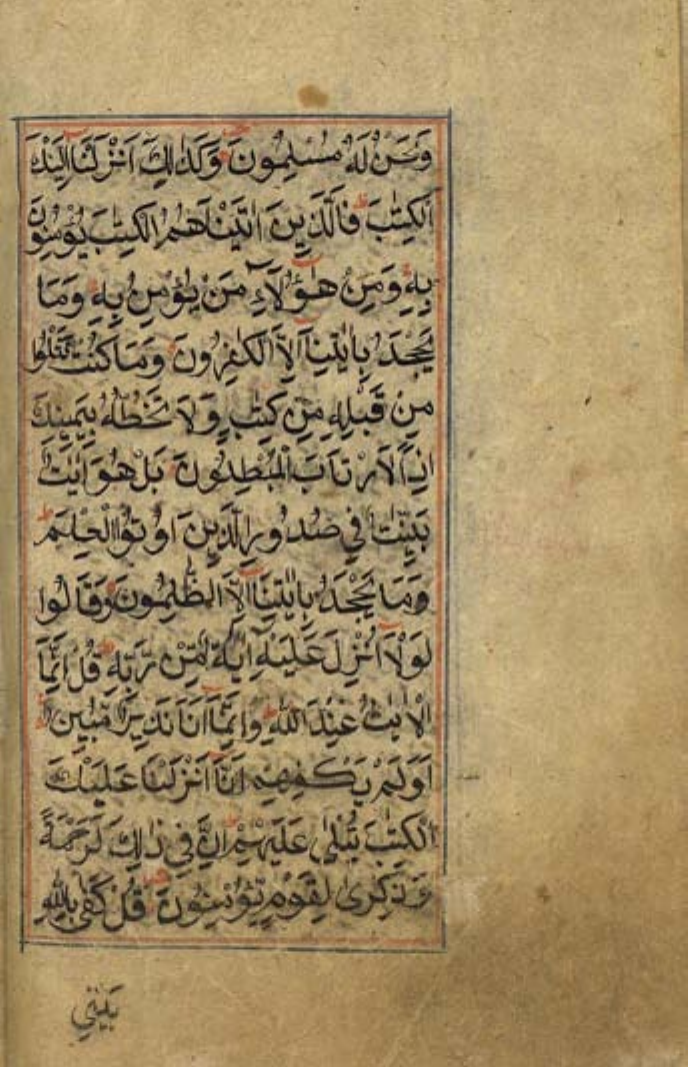 وَنَحْنُ لَهُ مُسْلِمُونَ وَكَذٰلِكَ اَنْزَلْنَا اِلَيْكَ
الْكِتٰبَ فَالَّذِينَ اٰتَيْنَاهُمُ الْكِتٰبَ يُؤْمِنُونَ
بِهٖ وَمِنْ هٰٓؤُلَآءِ مَنْ يُؤْمِنُ بِهٖ وَمَا
يَجْحَدُ بِاٰيٰتِنَآ اِلَّا الْكٰفِرُونَ وَمَا كُنْتَ تَتْلُوا
مِنْ قَبْلِهٖ مِنْ كِتٰبٍ وَلَا تَخُطُّهُ بِيَمِينِكَ
اِذًا لَارْتَابَ الْمُبْطِلُونَ بَلْ هُوَ اٰيٰتٌ
بَيِّنٰتٌ فِي صُدُورِ الَّذِينَ اُوتُوا الْعِلْمَ
وَمَا يَجْحَدُ بِاٰيٰتِنَآ اِلَّا الظّٰلِمُونَ وَقَالُوا
لَوْلَآ اُنْزِلَ عَلَيْهِ اٰيَةٌ مِنْ رَبِّهٖ قُلْ اِنَّمَا
الْاٰيٰتُ عِنْدَ اللّٰهِ وَاِنَّمَآ اَنَا نَذِيرٌ مُبِينٌ
اَوَلَمْ يَكْفِهِمْ اَنَّآ اَنْزَلْنَا عَلَيْكَ
الْكِتٰبَ يُتْلٰى عَلَيْهِمْ اِنَّ فِي ذٰلِكَ لَرَحْمَةً
وَذِكْرٰى لِقَوْمٍ يُؤْمِنُونَ قُلْ كَفٰى بِاللّٰهِ
بَيْنِي